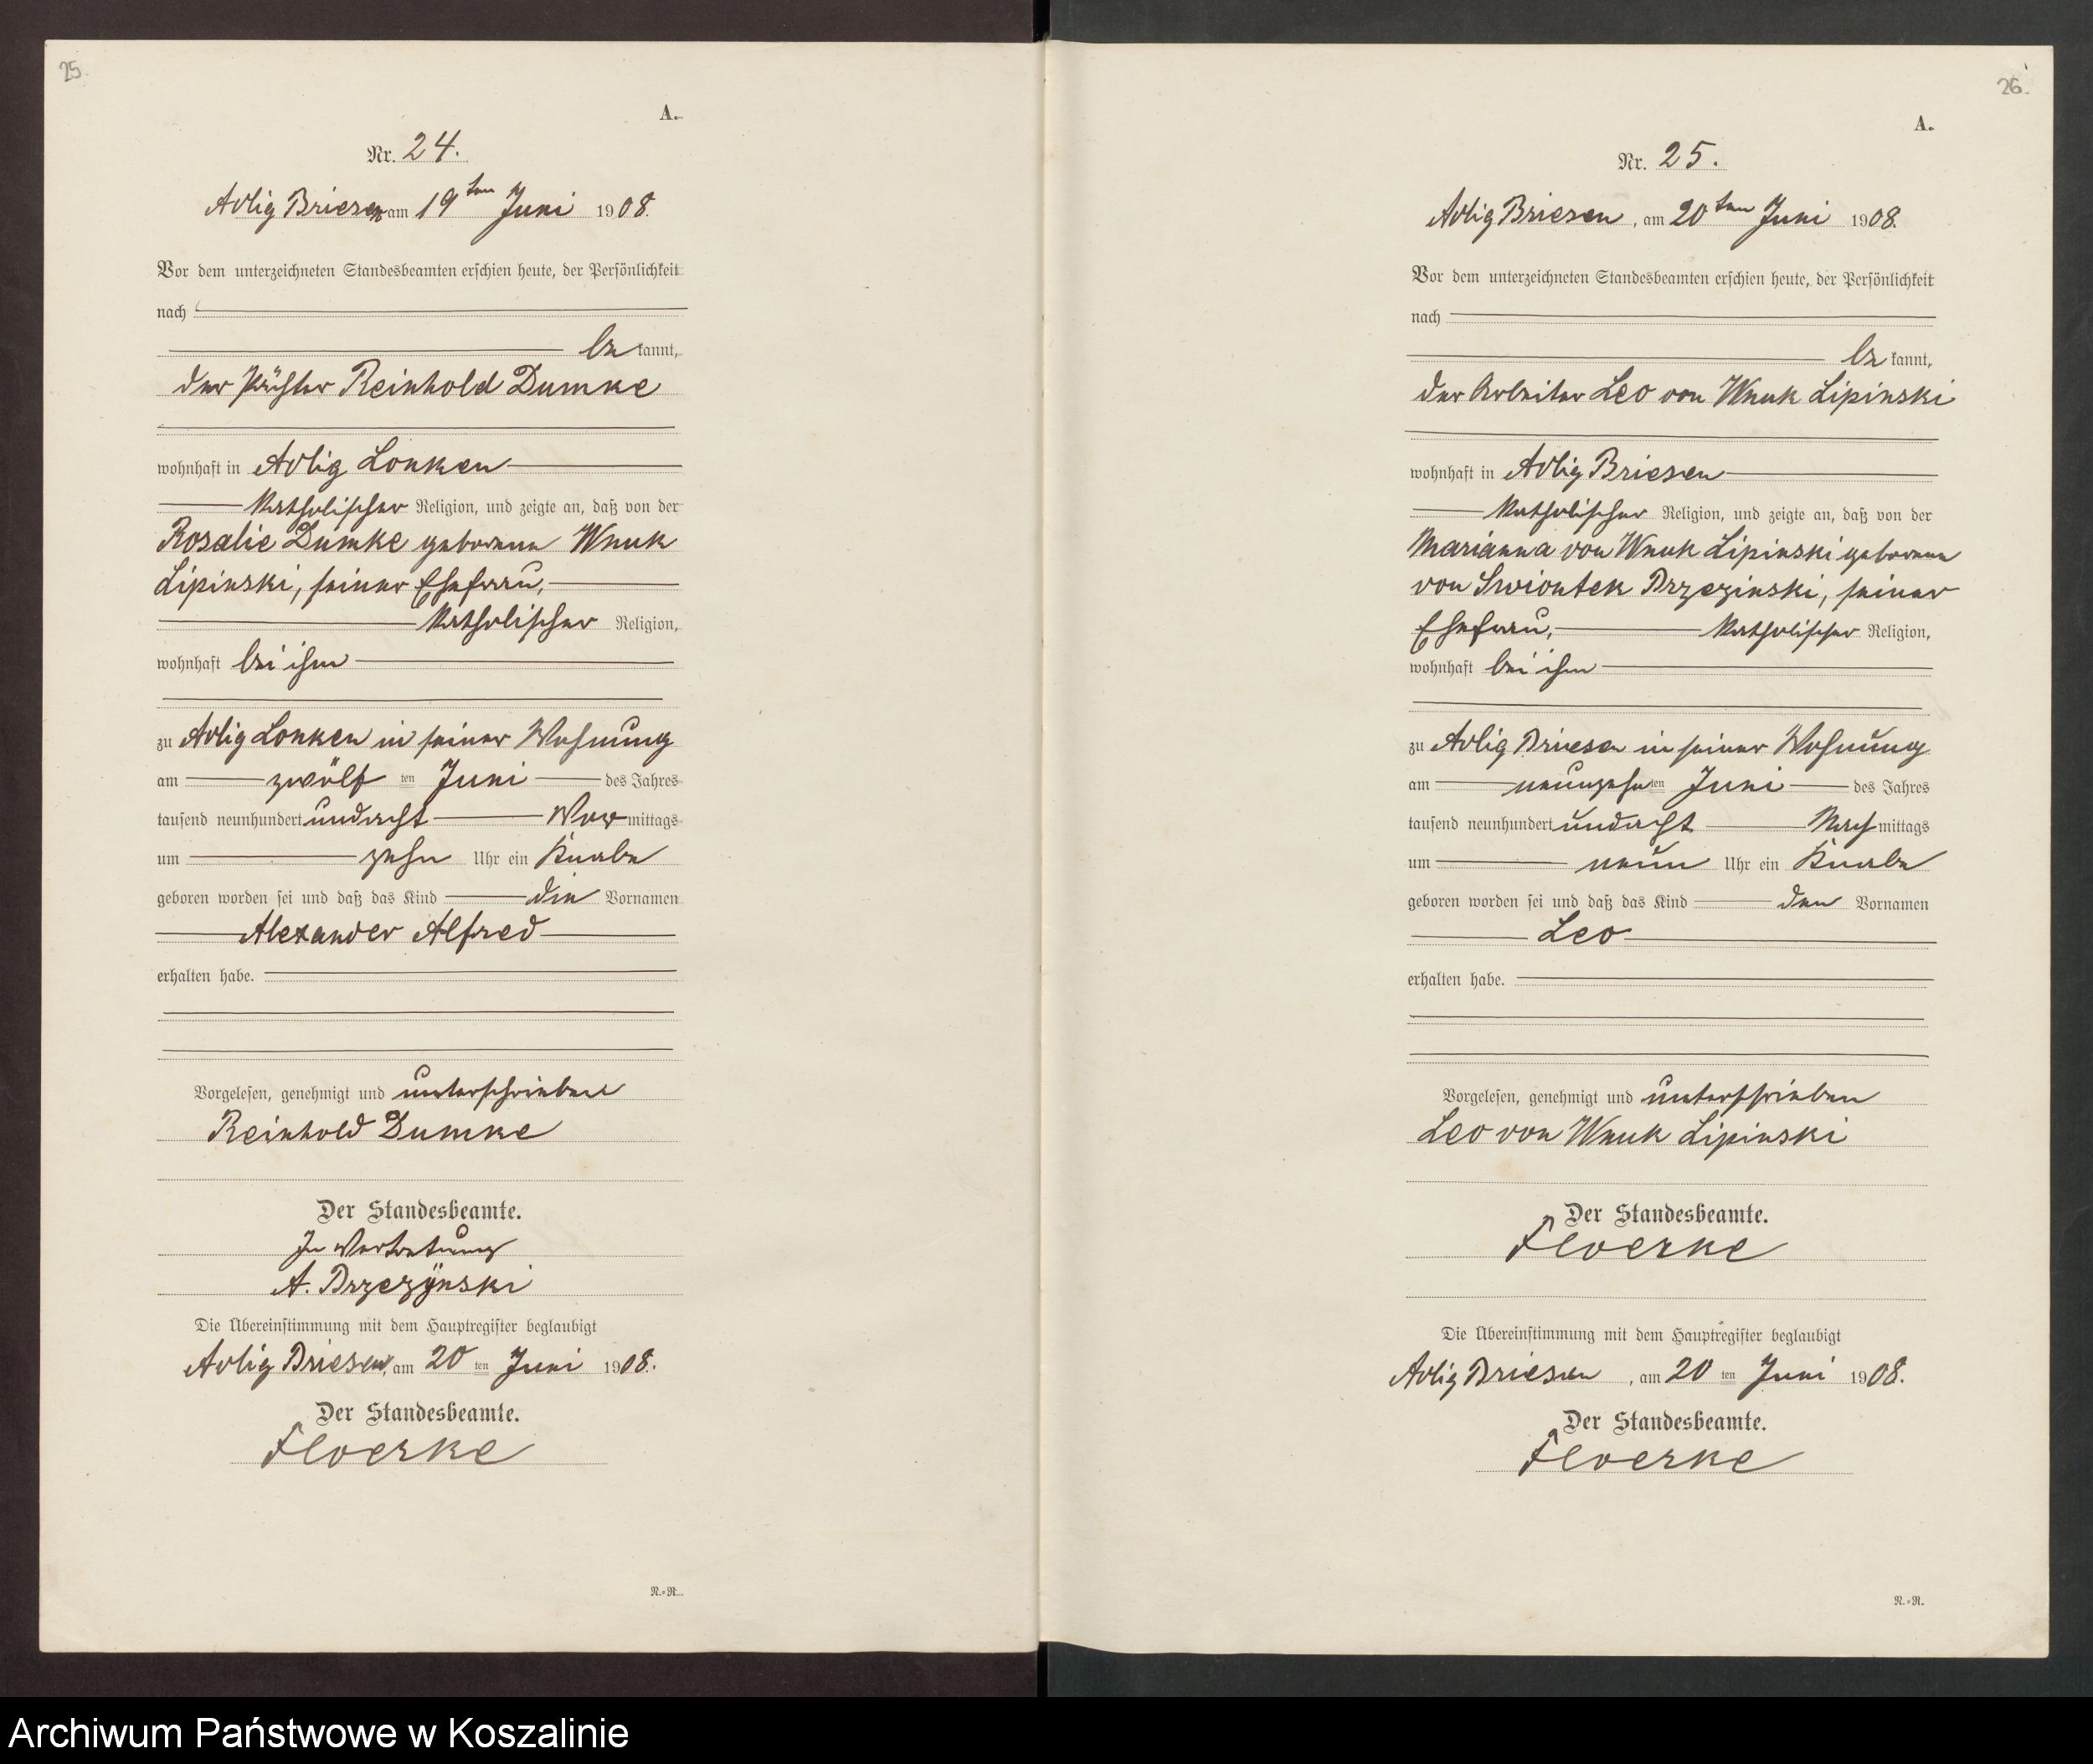 25.
A.
Nr. 24.
Adlig Briesen am 19ten Juni 1908.
Vor dem unterzeichneten Standesbeamten erschien heute, der Persönlichkeit
nach
bekannt,
der Pächter Reinhold Dumke
wohnhaft in Adlig Lonken
katholischer Religion, und zeigte an, daß von der
Rosalie Dumke geborene Wnuk
Lipinski, seiner Ehefrau,
katholischer Religion,
wohnhaft bei ihm
zu Adlig Lonken in seiner Wohnung
am zwölf ten Juni des Jahres
tausend neunhundert undacht Vormittags
um zehn Uhr ein Knabe
geboren worden sei und daß das Kind die Vornamen
Alexander Alfred
erhalten habe.
Vorgelesen, genehmigt und unterschrieben
Reinhold Dumke
Der Standesbeamte.
In Vertretung
A. Brzezynski
Die Übereinstimmung mit dem Hauptregister beglaubigt
Adlig Briesen, am 20 ten Juni 1908.
Der Standesbeamte.
Floerke
N.-R.
26.
A.
Nr. 25.
Adlig Briesen, am 20ten Juni 1908.
Vor dem unterzeichneten Standesbeamten erschien heute, der Persönlichkeit
nach
bekannt,
der Arbeiter Leo von Wnuk Lipinski
wohnhaft in Adlig Briesen
katholischer Religion, und zeigte an, daß von der
Marianna von Wnuk Lipinski geborene
von Swiontek Brzezinski, seiner
Ehefrau, katholischer Religion,
wohnhaft bei ihm
zu Adlig Briesen in seiner Wohnung
am neunzehn ten Juni des Jahres
tausend neunhundert undacht Nachmittags
um neun Uhr ein Knabe
geboren worden sei und daß das Kind den Vornamen
Leo
erhalten habe.
Vorgelesen, genehmigt und unterschrieben
Leo von Wnuk Lipinski
Der Standesbeamte.
Floerke
Die Übereinstimmung mit dem Hauptregister beglaubigt
Adlig Briesen, am 20 ten Juni 1908.
Der Standesbeamte.
Floerke
N.-R.
Archiwum Państwowe w Koszalinie